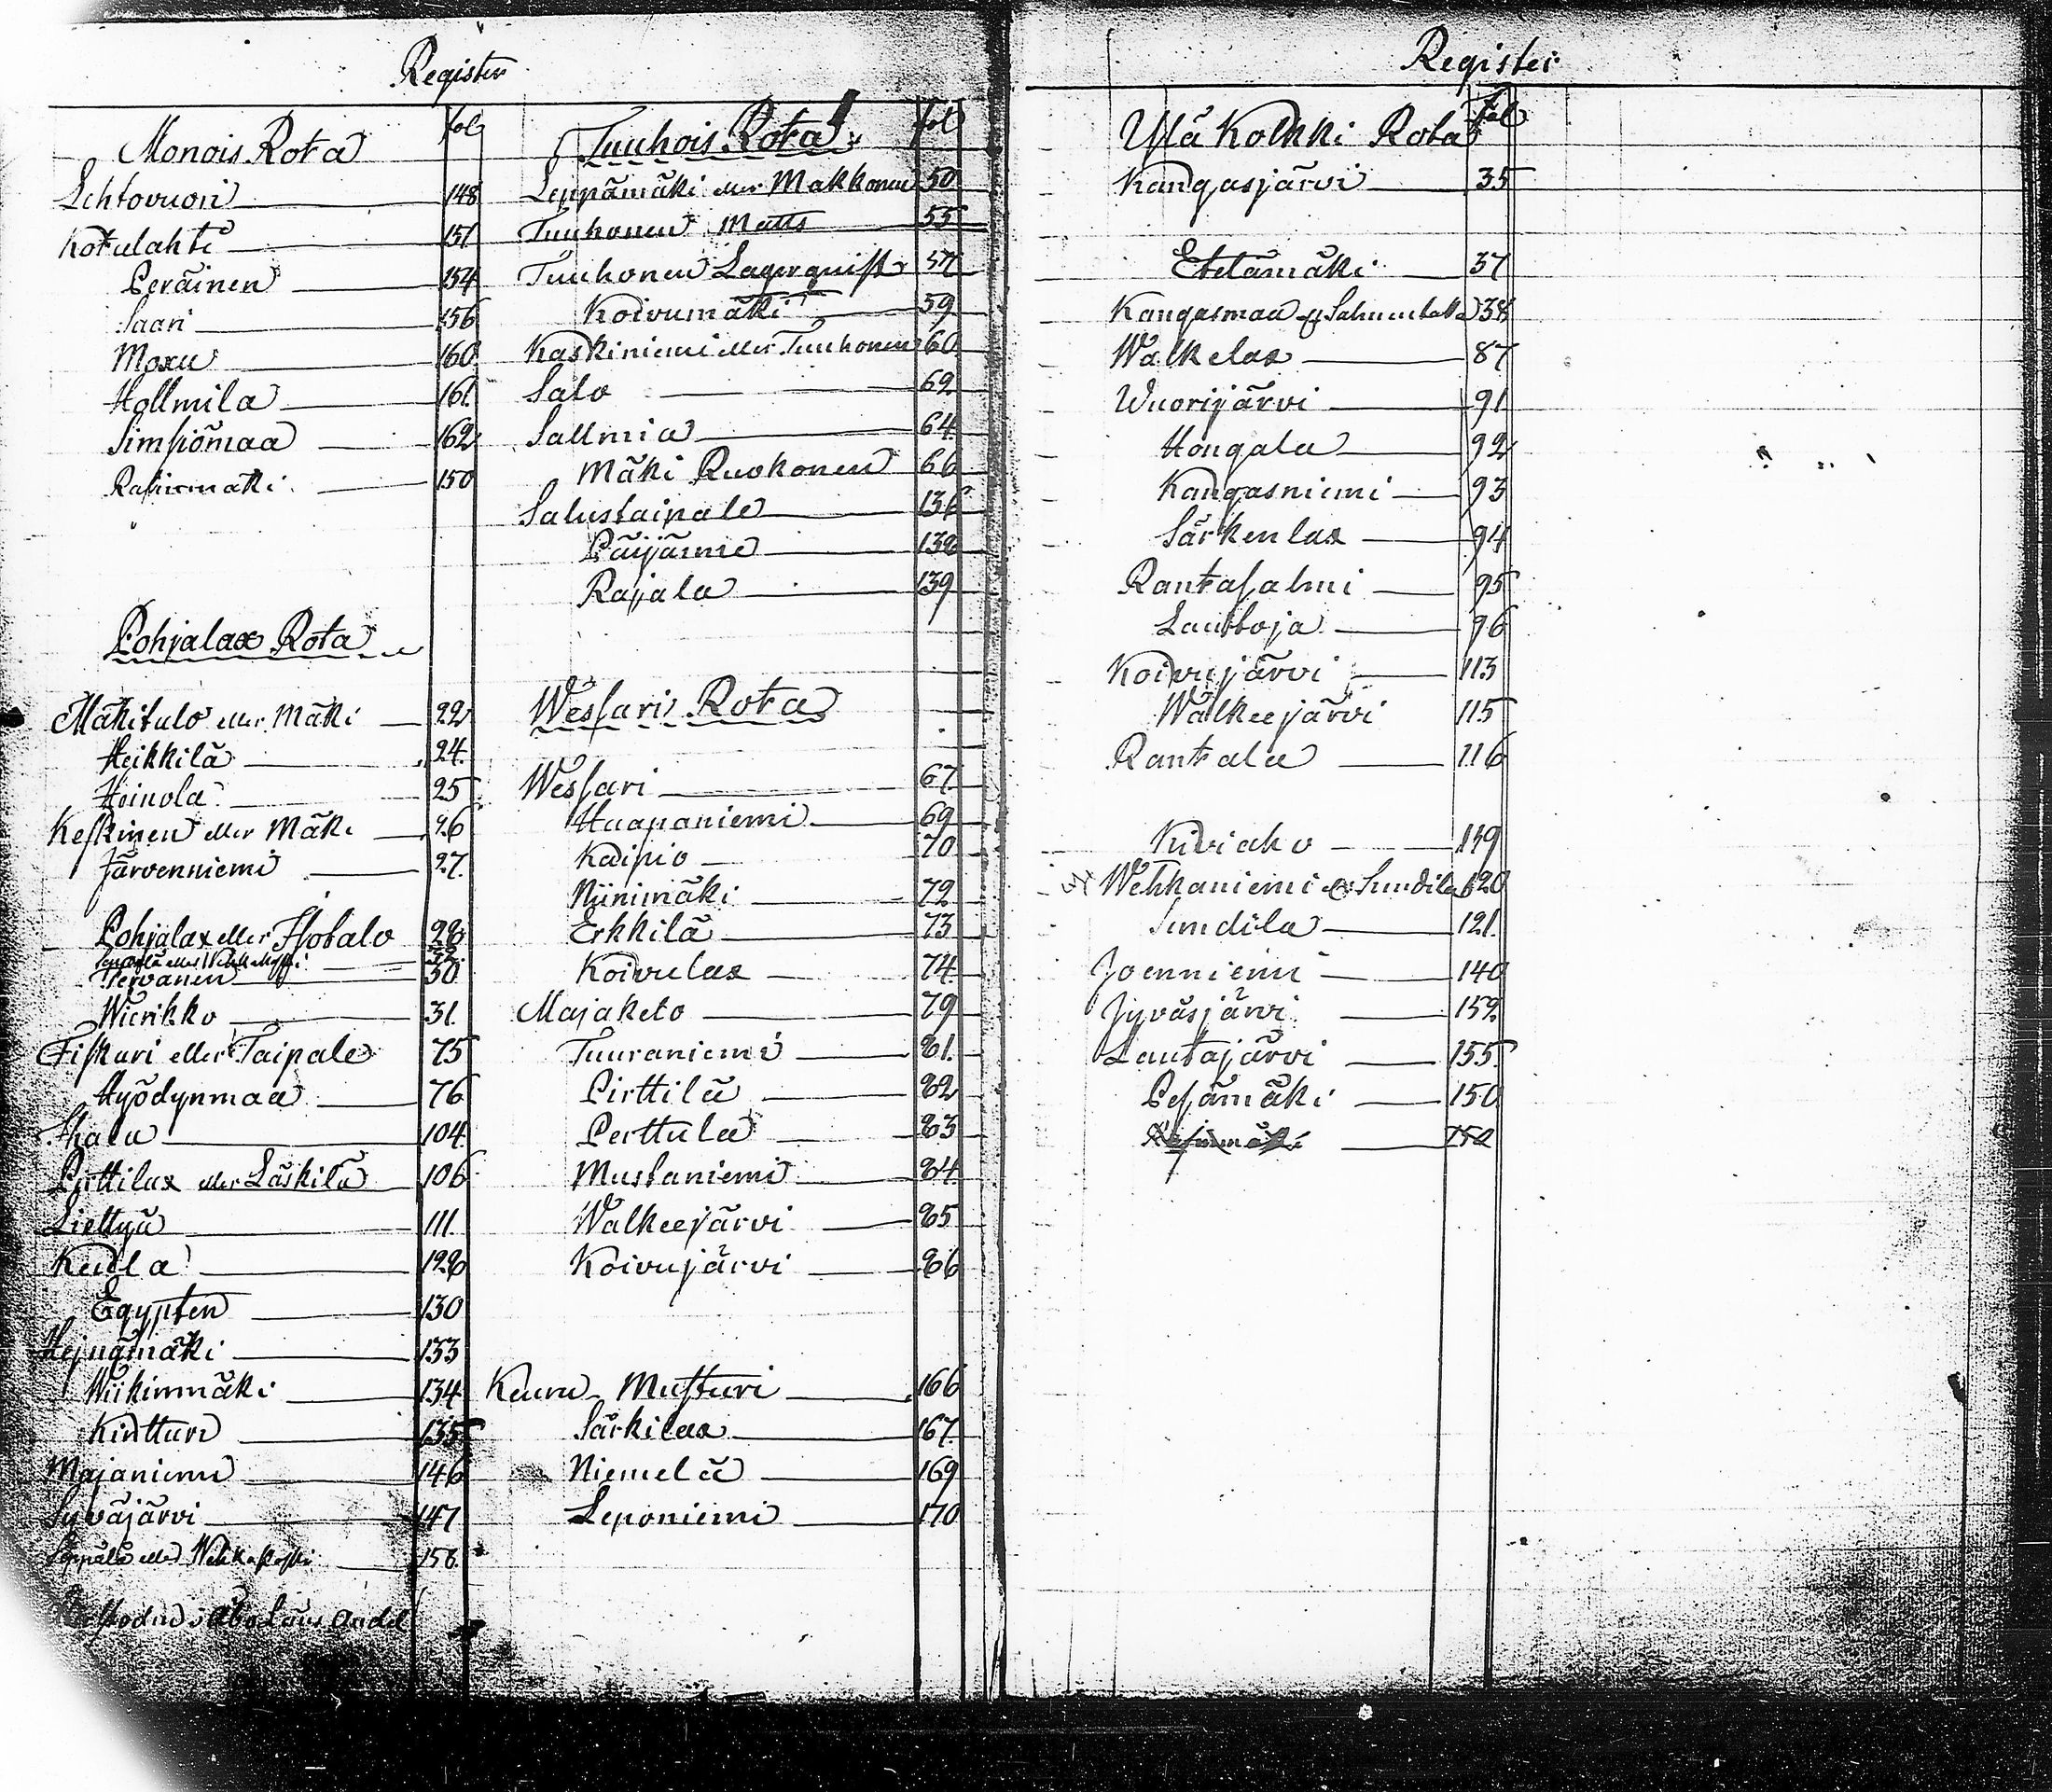 Register
Monois Rota fol
Lehtovuori 148
Kotulahti 151
Peräinen 154
Saari 156
Moxu 160
Hollmila 161.
Simsiömaa 162
150
Pohjalax Rota
Mäkitulo eller Mäki 22
Heikkilä 24.
Heinola 25
Keskinen eller Mäki 26
Järvenniemi 27.
Pohjalax eller Isotalo 28
Tervanen 30
Wierikko 31.
Fiskari eller Taipale 75
Hyödynmaa 76
Ahala 104
Pirttilax eller Läskilä 106
Liettyä 111.
Keula 128
Egypten 130
Heinämäki 133
Wiikinmäki 134
Kintturi 135
Majaniemi 146
Syväjärvi 147
Seppälä eller Wehkakoski 158
Tuuhois Rota fol
Leppämäki eller Makkonen 50
Tuuhonen Matts 55
Tuuhonen Lagerquist 57
Koivumäki 59
Kaskiniemi eller Tuuhonen 60
Salo 62
Sallmia 64
Mäki Ruokonen 66
Salustaipale 136
Päijänne 138
Rajala 139
Wessari Rota
Wessari 67
Haapaniemi 69
Kaipio 70
Niinimäki 72
Erkkilä 73
Koivulax 74.
Majaketo 79
Tuuraniemi 81.
Pirttilä 82
Perttula 83
Mustaniemi 84.
Walkeejärvi 85
Koivujärvi 86
Keuru Musturi 166
Särkilax 167.
Niemelä 169
Leponiemi 170
Register
Ylä Kolkki Rota fol
Kangasjärvi 35
Etelämäki 37
Kangasmaa 38
Walkelax 87
Wuorijärvi 91
Hongala 92
Kangasniemi 93
Särkenlax 94
Rantasalmi 95
Lauttoja 96
Koivujärvi 113
Walkeejärvi 115
Rantala 116
Kiviaho 119
Wehkaniemi Sundila 120
Sundila 121.
Joenniemi 140
Jyväsjärvi 159
Lautajärvi 155
Pesämäki 150